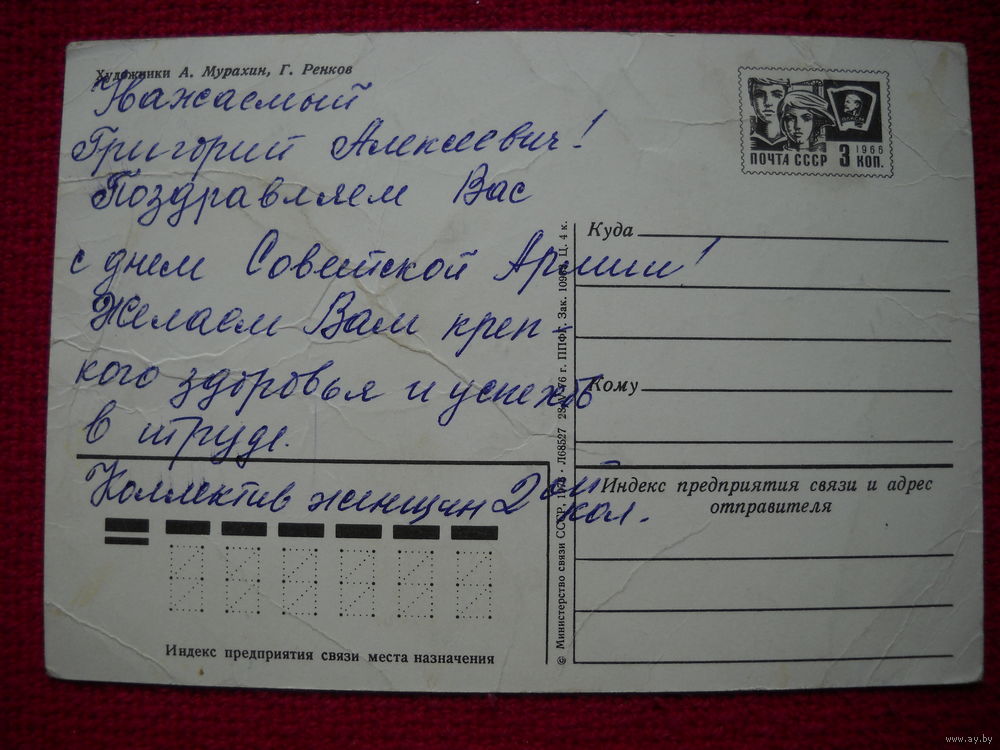 Художники А. Мурахин, Г. Ренков
Уважаемый
Григорий Алексеевич!
Поздравляем Вас
с днем Советской Армии!
Желаем Вам креп-
кого здоровья и успехов
в труде.
Коллектив женщин 2 ой
кол.
ПОЧТА СССР 3 1966 КОП.
Куда
Кому
Индекс предприятия связи и адрес
отправителя
Индекс предприятия связи места назначения
© Министерство связи СССР, Л68527 76 г. ППФГ. Зак. Ц. 4 к.
www.ay.by